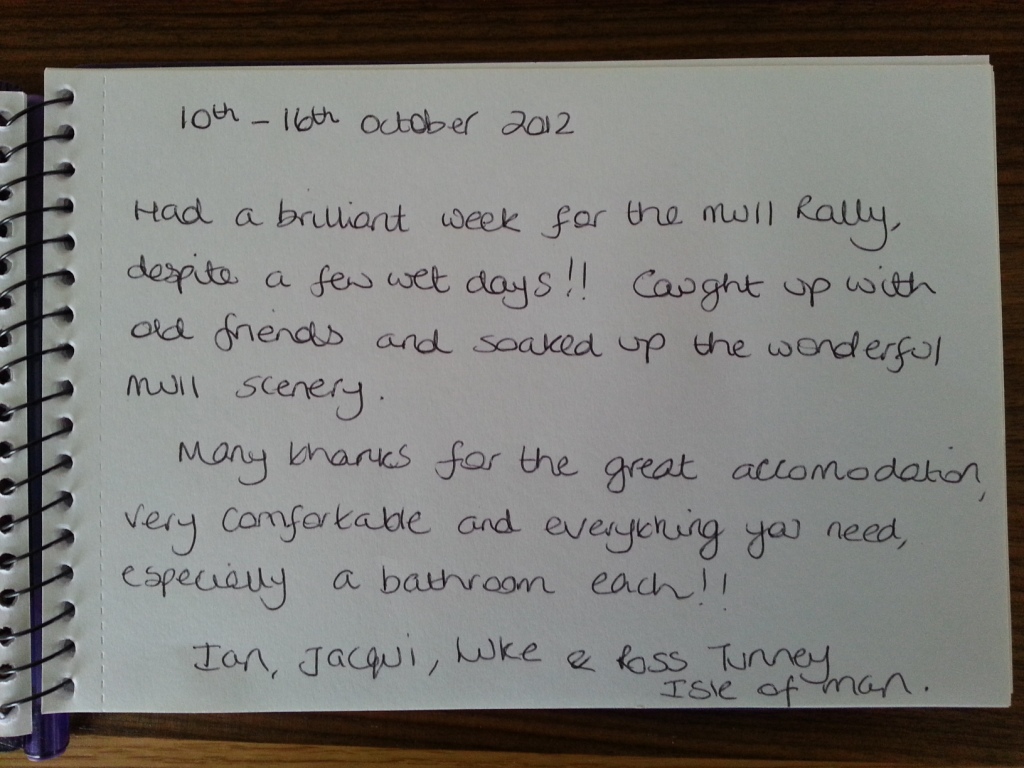 10th - 16th October 2012
Had a brilliant week for the Mull Rally,
despite a few wet days!! Caught up with
old friends and soaked up the wonderful
Mull scenery.
Many thanks for the great accomodation,
very comfortable and everything you need,
especially a bathroom each!!
Ian, Jacqui, Luke & Ross Tunney
Isle of Man.